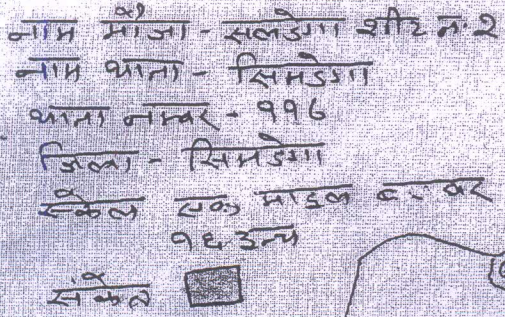 नाम मौजा - सलडेगा शीट नं. २
नाम थाना - सिमडेगा
थाना नम्बर - ११६
जिला - सिमडेगा
स्केल एक माइल बराबर
१६ इन्च
संकेत